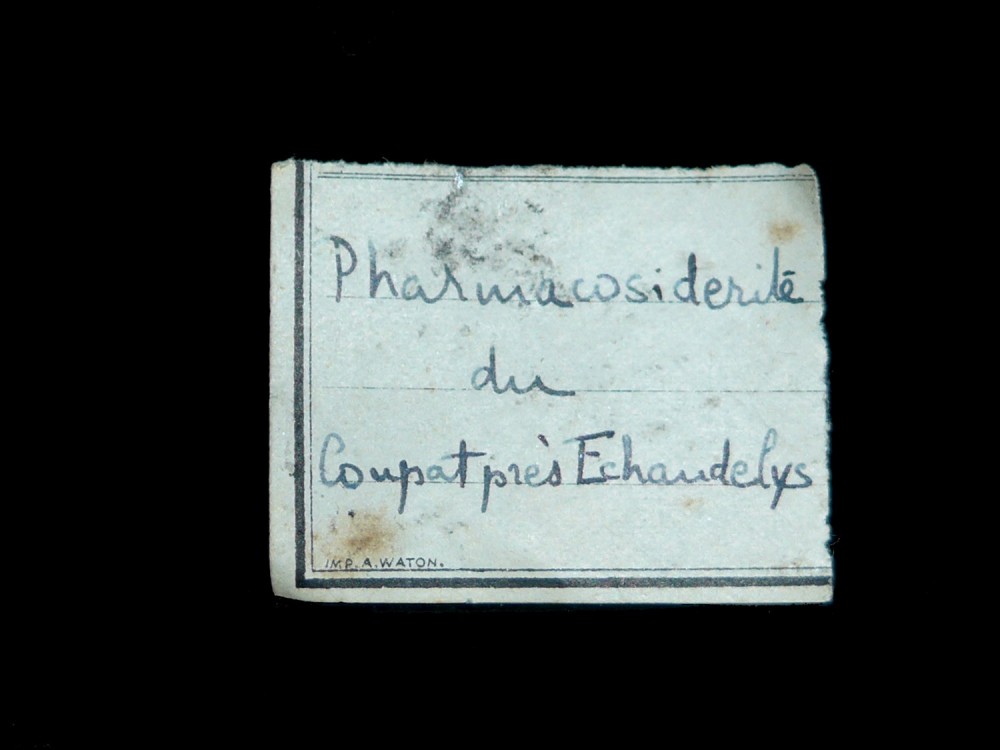 Pharmacosiderite
du
Coupat près Echandelys
IMP. A. WATON.